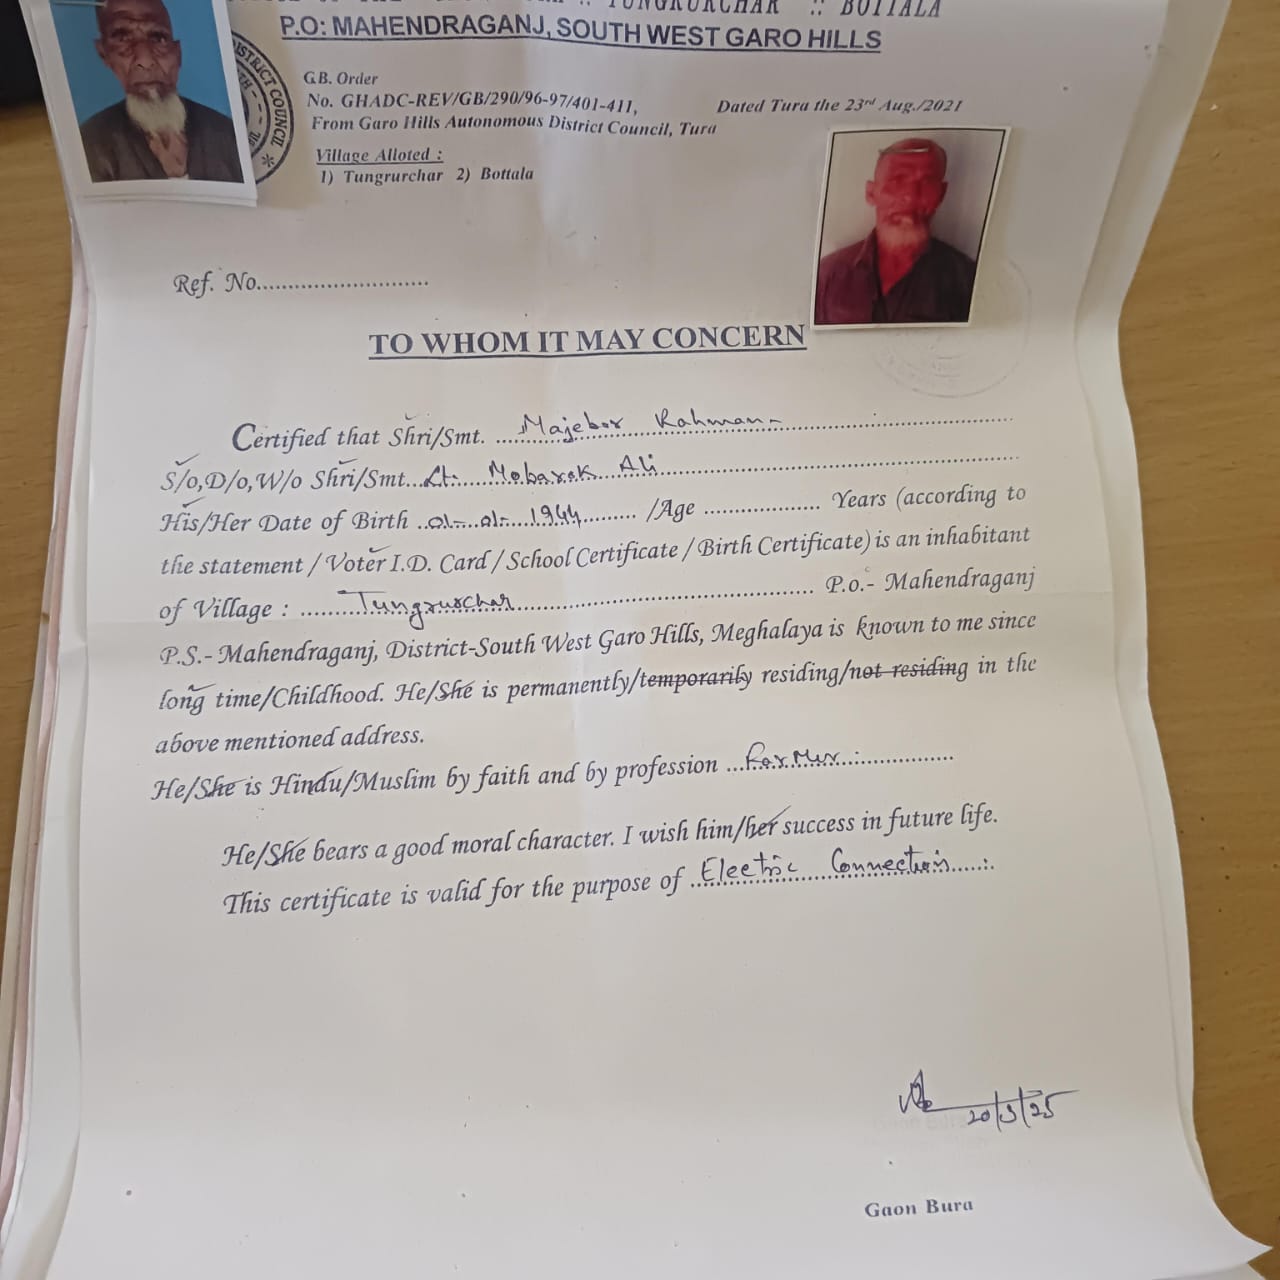 TUNGRURCHAR :: BOTTALA
P.O: MAHENDRAGANJ, SOUTH WEST GARO HILLS
DISTRICT COUNCIL
G.B. Order
No. GHADC-REV/GB/290/96-97/401-411, Dated Tura the 23rd Aug./2021
From Garo Hills Autonomous District Council, Tura
Village Alloted :
1) Tungrurchar 2) Bottala
Ref. No...........................
TO WHOM IT MAY CONCERN
Certified that Shri/Smt. Majebor Rahman
S/o,D/o,W/o Shri/Smt...Lt. Mobarok Ali
His/Her Date of Birth 01-01-1944 /Age ................... Years (according to
the statement / Voter I.D. Card / School Certificate / Birth Certificate) is an inhabitant
of Village : Tungrurchar P.o.- Mahendraganj
P.S.- Mahendraganj, District-South West Garo Hills, Meghalaya is known to me since
long time/Childhood. He/She is permanently/temporarily residing/not residing in the
above mentioned address.
He/She is Hindu/Muslim by faith and by profession Farmer
He/She bears a good moral character. I wish him/her success in future life.
This certificate is valid for the purpose of Electric Connection
20/3/25
Gaon Bura